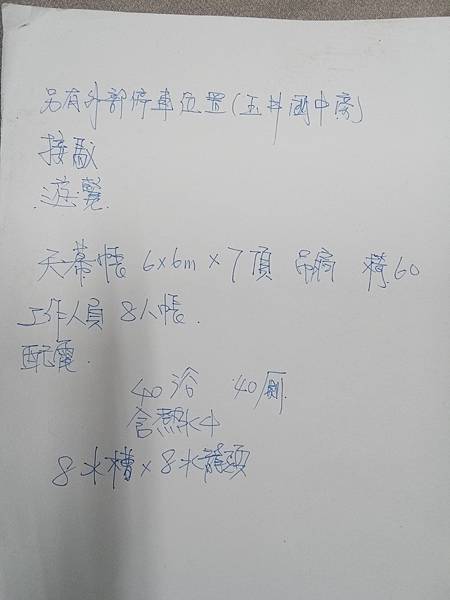 另有外部停車位置(玉井國中旁)
接駁
遊覽
天幕帳 6x6m x 7頂 吊扇 60
工作人員 8人帳.
配電.
40浴 40廁
含熱水
8水槽 x 8水龍頭